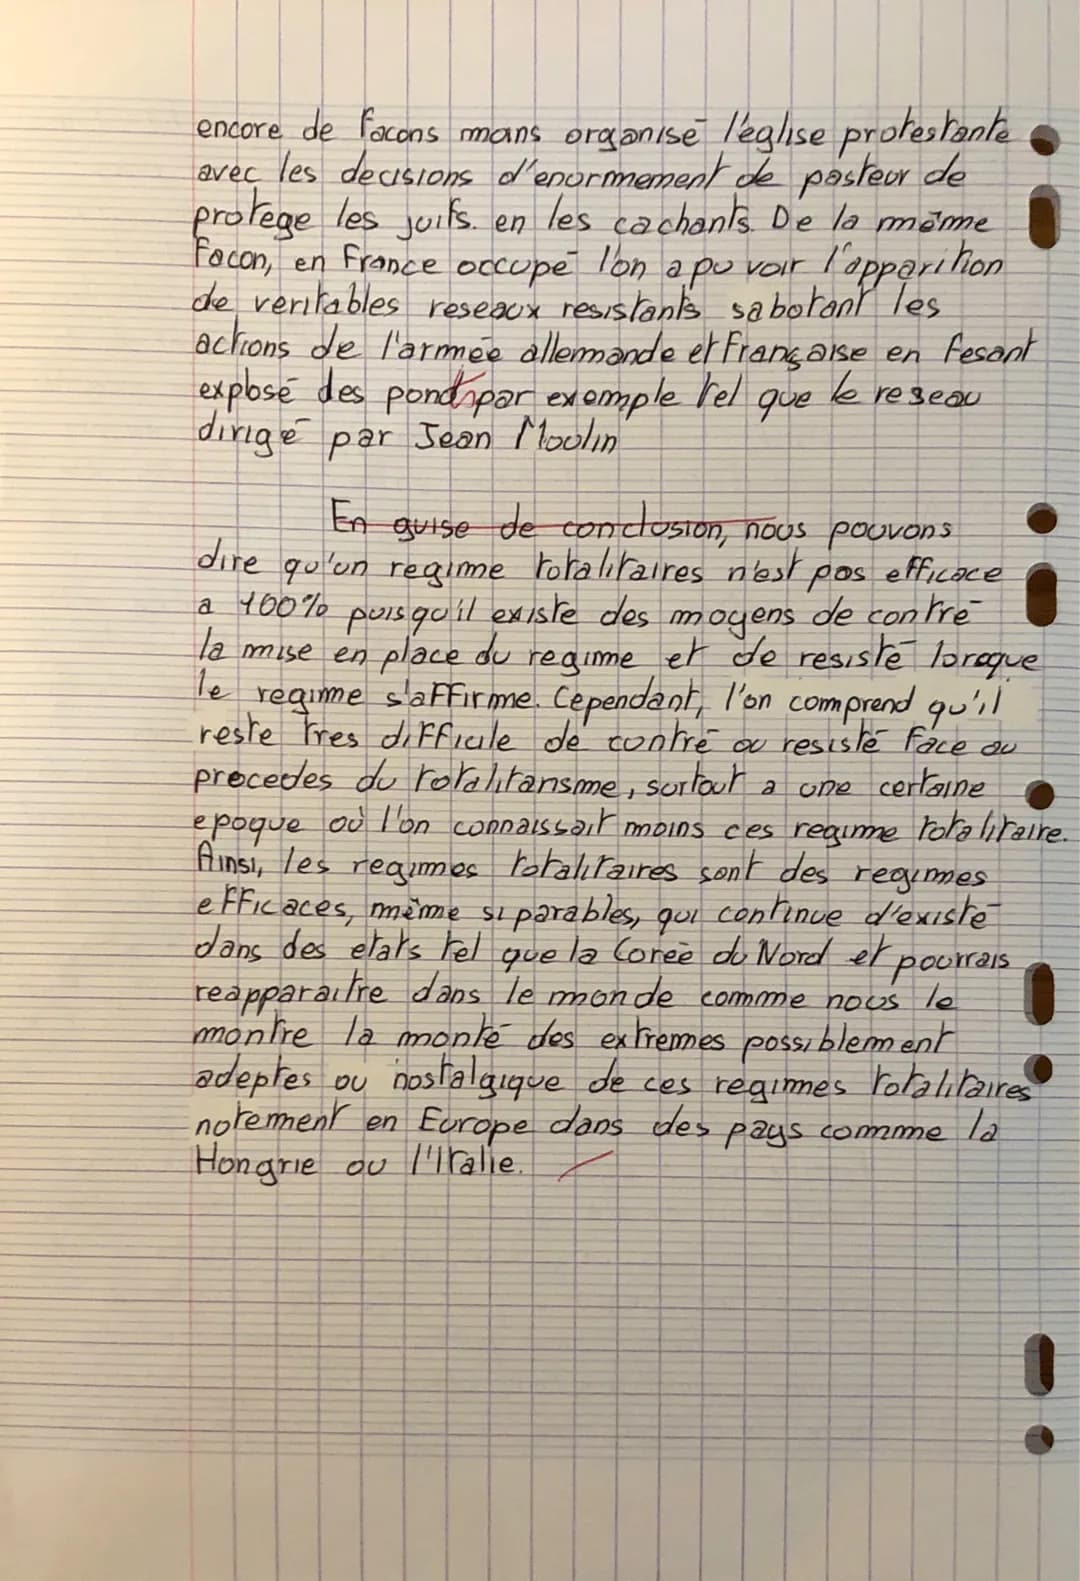 encore de facons mans organisé l'église protestante
avec les decisions d'enormement de pasteur de
protege les juifs. en les cachants. De la même
facon, en France occupé l'on a pu voir l'apparition
de veritables reseaux resistants sabotant les
actions de l'armée allemande et Française en fesant
explosé des pond par exemple tel que le reseau
dirigé par Jean Moulin
En guise de conclusion, nous pouvons
dire qu'un regime totalitaires n'est pas efficace
a 100% puisqu'il existe des moyens de contré
la mise en place du regime et de resisté lorsque
le regime s'affirme. Cependant, l'on comprend qu'il
reste tres difficile de contré ou resisté face au
procedes du totalitarisme, surtout a une certaine
epoque où l'on connaissait moins ces regime totalitaire.
Ainsi, les regimes totalitaires sont des regimes
efficaces, même si parables, qui continue d'existé
dans des etats tel que la Corée du Nord et pourrais
reapparaitre dans le monde comme nous le
montre la monté des extremes possiblement
adeptes ou nostalgique de ces regimes totalitaires
notement en Europe dans des pays comme la
Hongrie ou l'Italie.